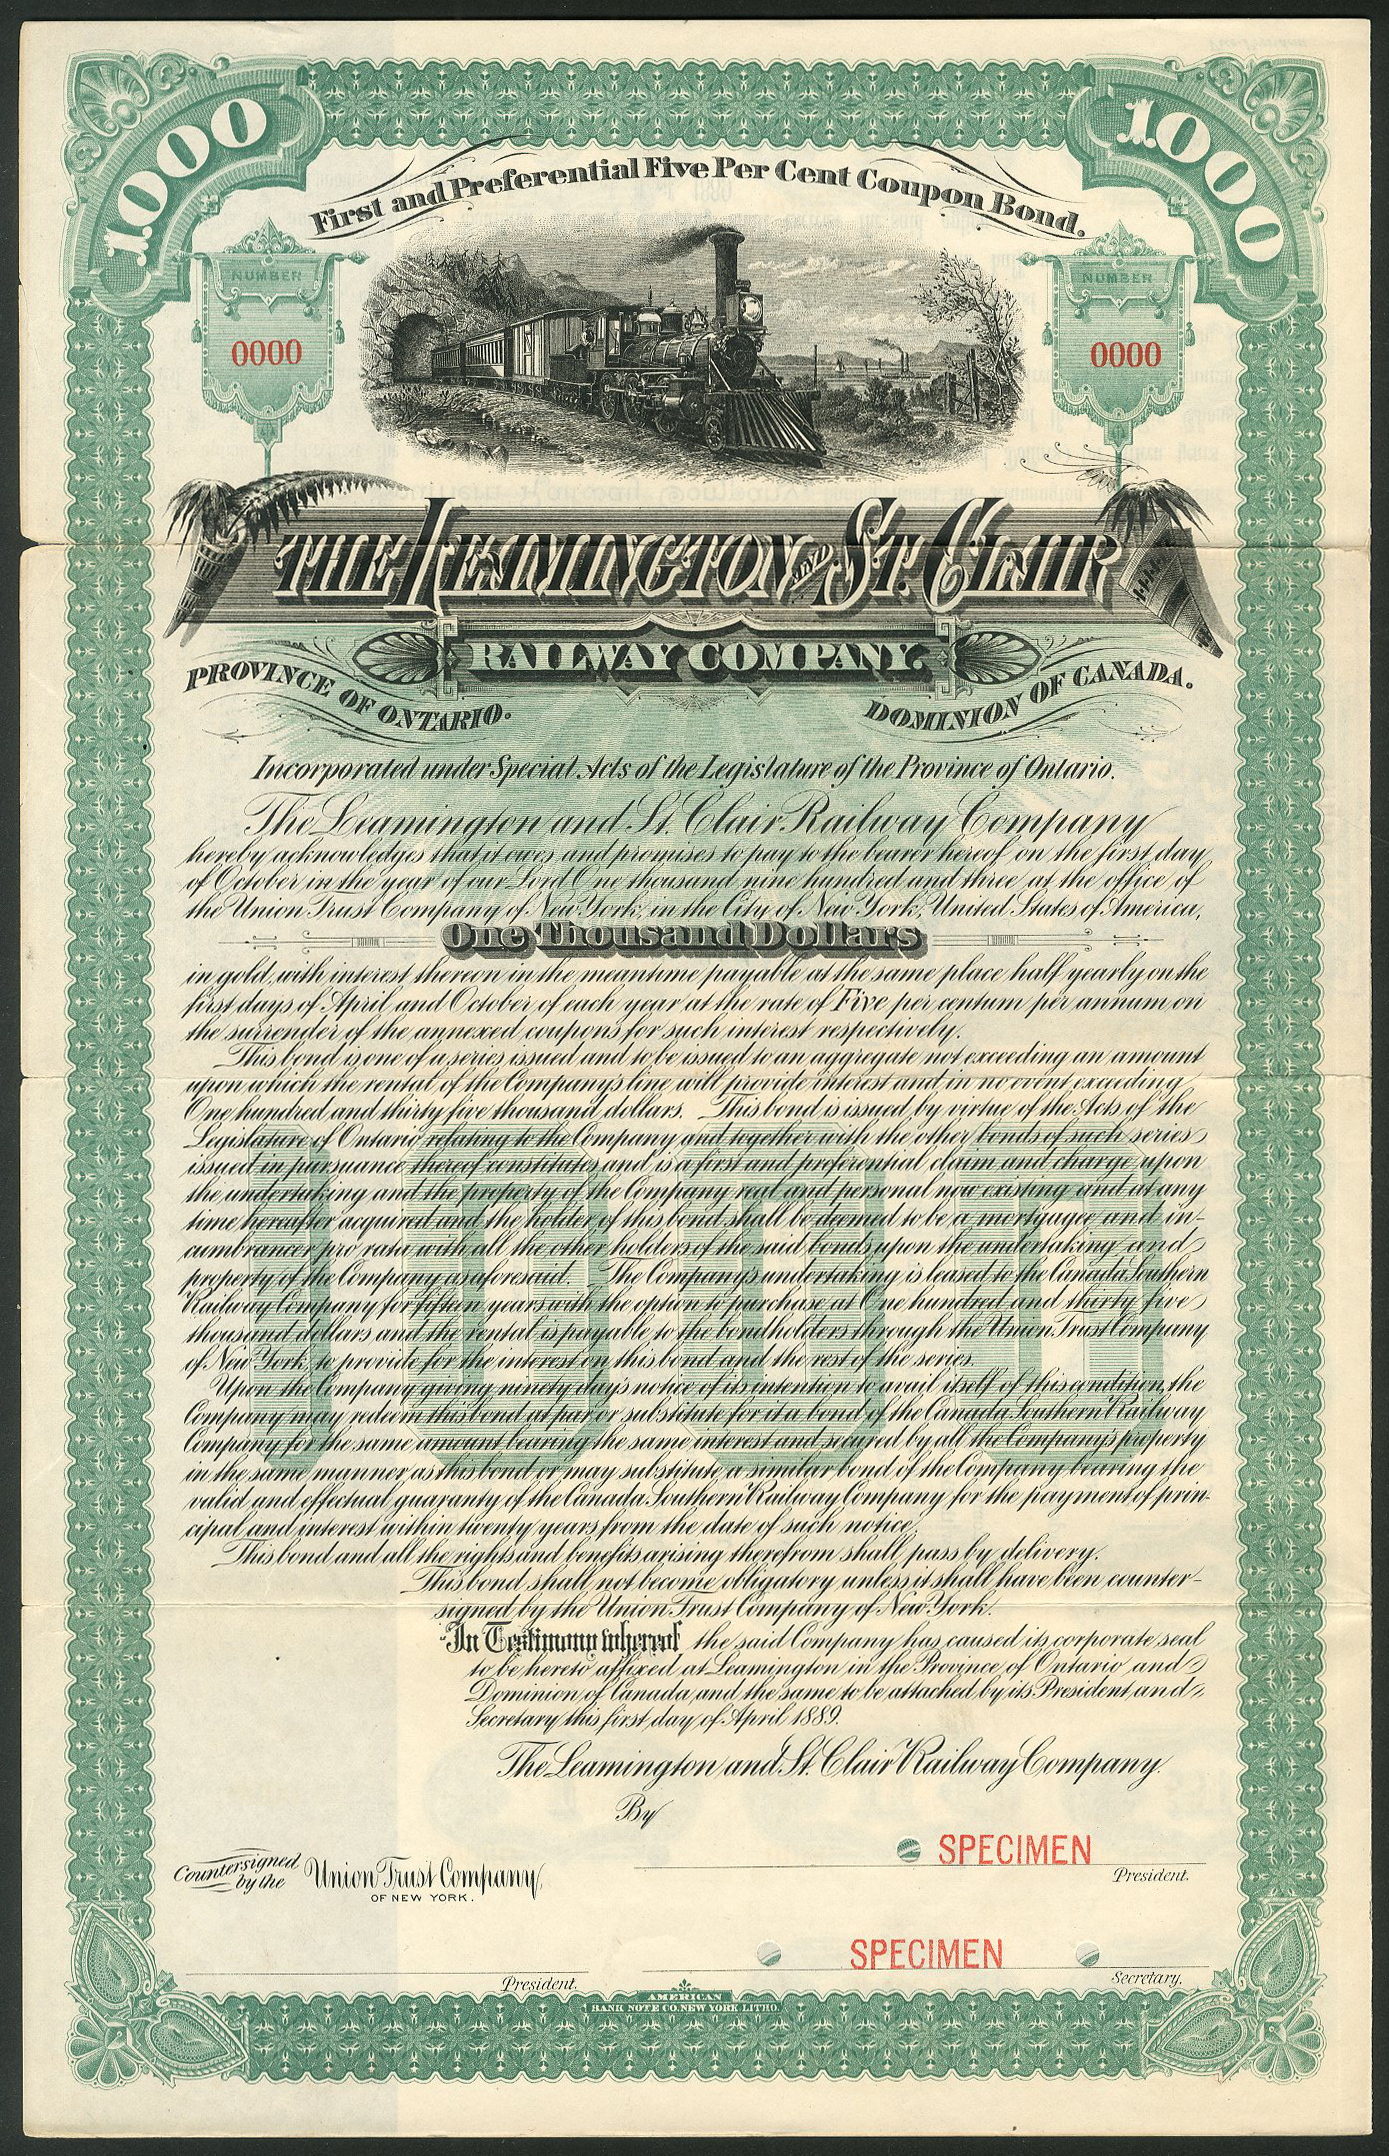 1000
1000
First and Preferential Five Per Cent Coupon Bond.
NUMBER
NUMBER
0000
0000
THE LEAMINGTON AND ST. CLAIR
RAILWAY COMPANY.
PROVINCE OF ONTARIO.
DOMINION OF CANADA.
Incorporated under Special Acts of the Legislature of the Province of Ontario.
The Leamington and St. Clair Railway Company
hereby acknowledges that it owes and promises to pay to the bearer hereof on the first day
of October in the year of our Lord One thousand nine hundred and three at the office of
the Union Trust Company of New York, in the City of New York, United States of America,
One Thousand Dollars
in gold, with interest thereon in the meantime payable at the same place half yearly on the
first days of April and October of each year at the rate of Five per centum per annum on
the surrender of the annexed coupons for such interest respectively.
This bond is one of a series issued and to be issued to an aggregate not exceeding an amount
upon which the rental of the Company's line will provide interest and in no event exceeding
One hundred and thirty five thousand dollars. This bond is issued by virtue of the Acts of the
Legislature of Ontario relating to the Company and together with the other bonds of such series
issued in pursuance thereof constitutes and is a first and preferential claim and charge upon
the undertaking and the property of the Company real and personal now existing and at any
time hereafter acquired and the holder of this bond shall be deemed to be a mortgagee and in-
cumbrancer pro rata with all the other holders of the said bonds upon the undertaking and
property of the Company as aforesaid. The Company's undertaking is leased to the Canada Southern
Railway Company for fifteen years with the option to purchase at One hundred and thirty five
thousand dollars and the rental is payable to the bondholders through the Union Trust Company
of New York, to provide for the interest on this bond and the rest of the series.
Upon the Company giving ninety days notice of its intention to avail itself of this condition, the
Company may redeem this bond at par or substitute for it a bond of the Canada Southern Railway
Company for the same amount bearing the same interest and secured by all the Company's property
in the same manner as this bond or may substitute a similar bond of the Company bearing the
valid and effectual guaranty of the Canada Southern Railway Company for the payment of prin-
cipal and interest within twenty years from the date of such notice.
This bond and all the rights and benefits arising therefrom shall pass by delivery.
This bond shall not become obligatory unless it shall have been counter-
signed by the Union Trust Company of New York.
In Testimony whereof the said Company has caused its corporate seal
to be hereto affixed at Leamington in the Province of Ontario and
Dominion of Canada and the same to be attached by its President and
Secretary this first day of April 1889.
The Leamington and St. Clair Railway Company.
By
SPECIMEN
President.
Countersigned by the Union Trust Company
OF NEW YORK.
SPECIMEN
President.
Secretary.
AMERICAN
BANK NOTE CO. NEW YORK LITHO.